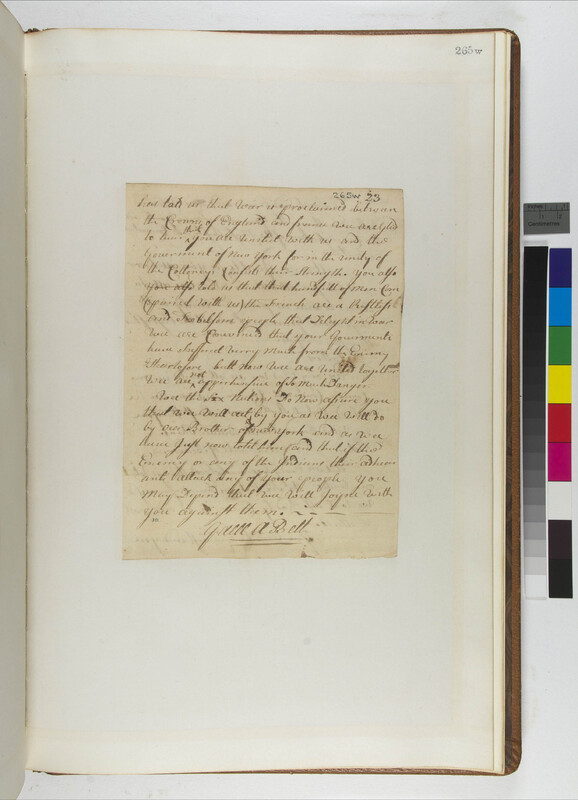 265w
265w 23
have told us that War is proclaimed between
the Crowns of England and france we are Glad
to hear that you are United with us and the
Government of New York for in the unity of
the Collonys Consists their Strength. You also
you also told us that that handfull of Men Com
pared with us the French are a Restless
and people that Delight in War
we are Concerned that your Goverments
have Suffered Verry Much from the Enemy
Heretofore butt now we are united together
We are not apprehensive of So Much Danger
We the Six Nations Do Now assure you
that we will act by you as we will do
by our Brother of New York and as we
have Just now told him and that if the
Enemy or any of the Indians their adhere
ants attack any of your people you
May Depend that we will Joyne with
you against them.
Gave A Belt